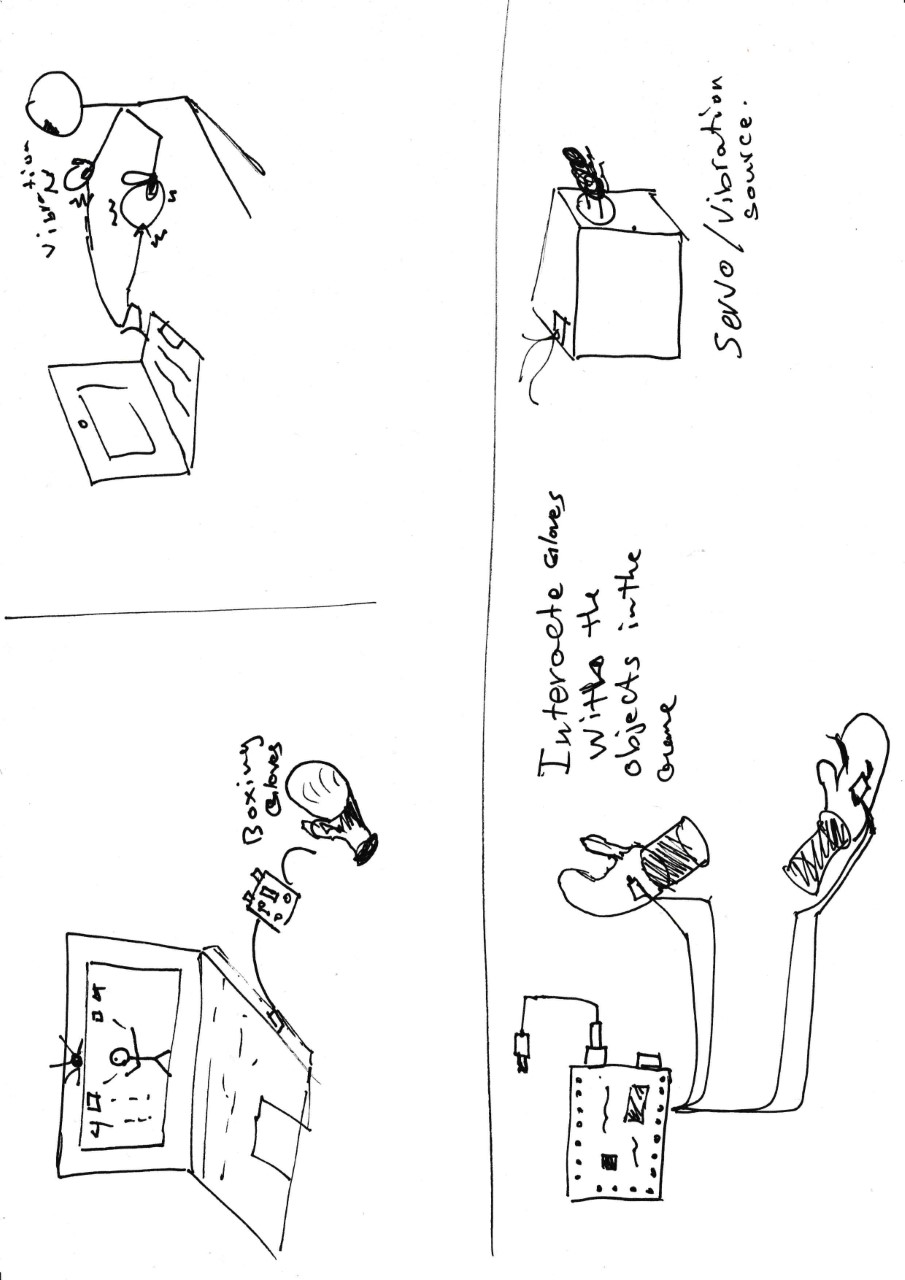 Boxing
Gloves
Vibration
Interacte Gloves
With the
objects in the
Game
Servo / Vibration
source.